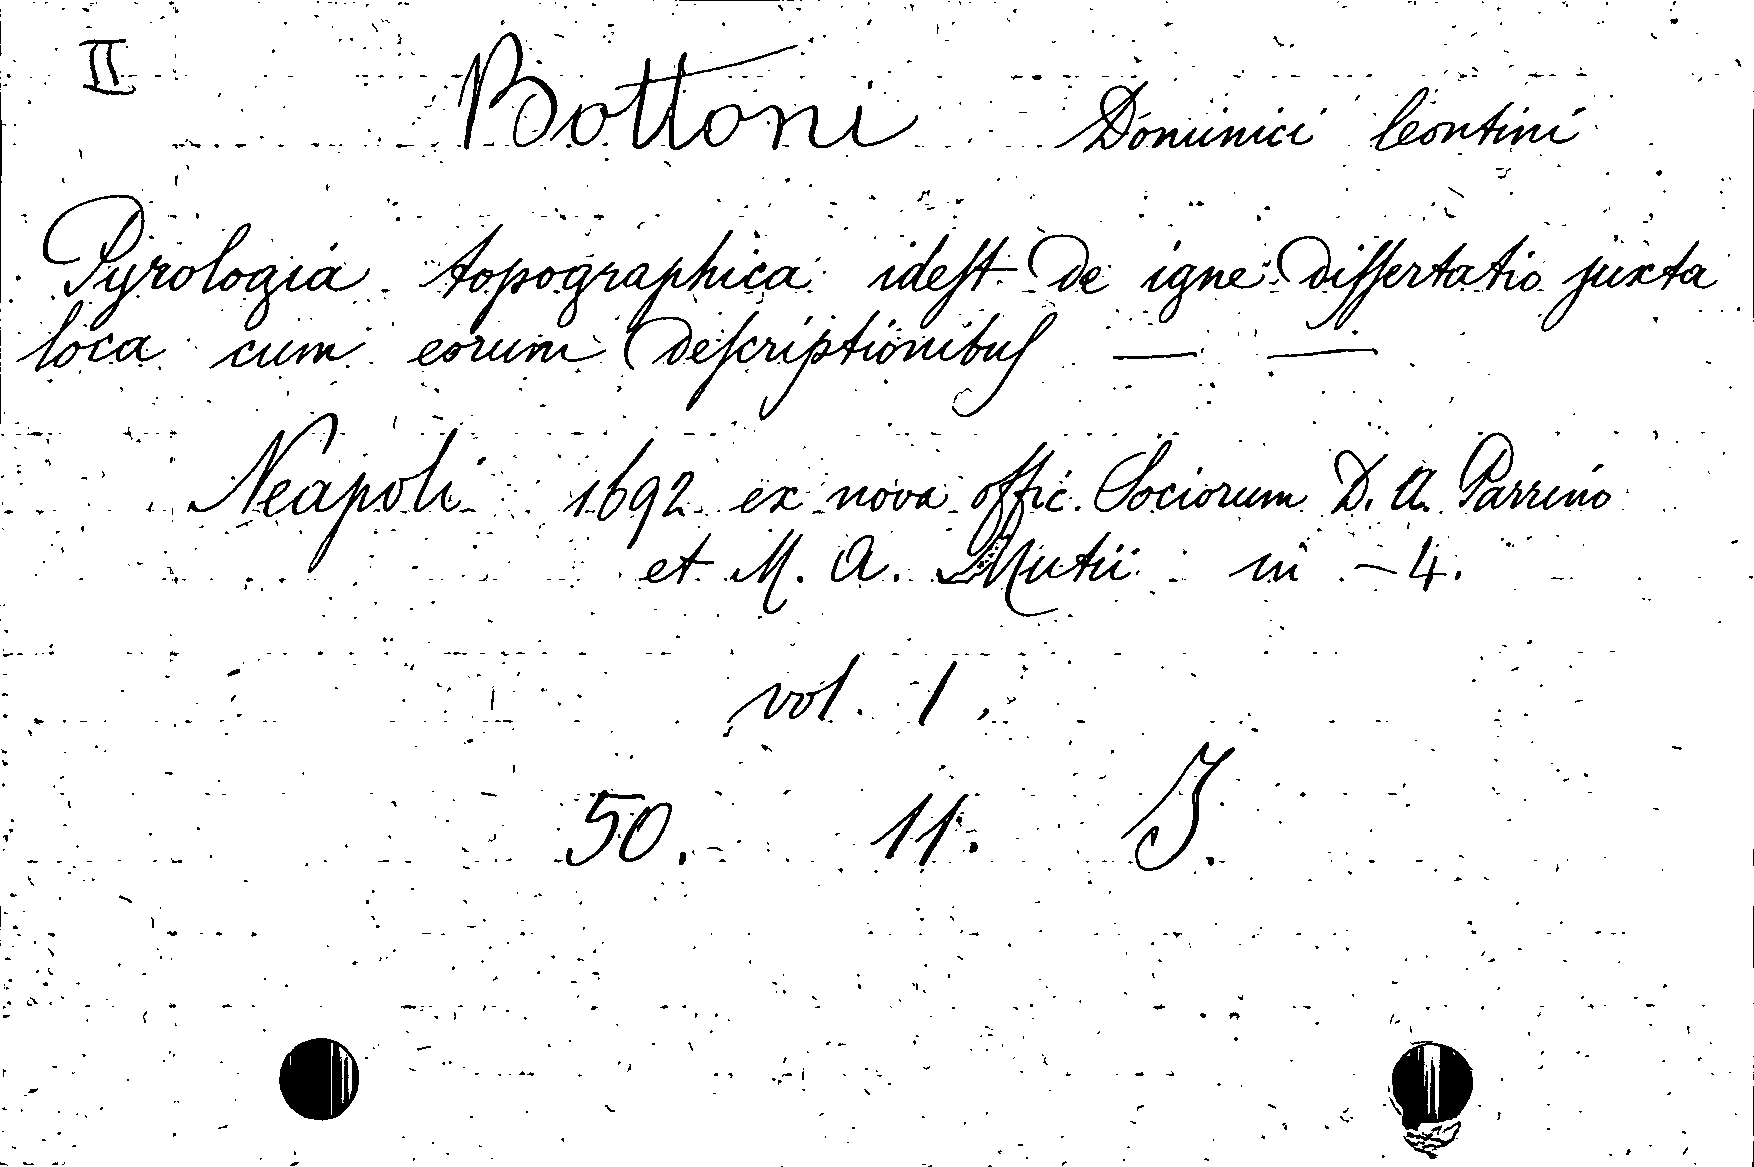 II
Bottoni Dominici leontini
Pyrologia topographica ideſt de igne diſſertatio juxta
loca cum eorum deſcriptionibuſ — —
Neapoli 1692 ex nova offic. Sociorum D. A. Parrino
et M. A. Mutii in - 4.
vol. 1.
50. 11. J.